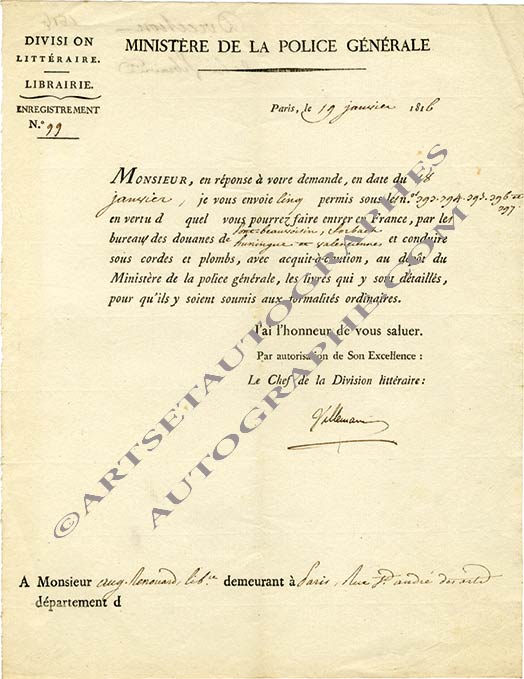 DIVISION
LITTÉRAIRE.
LIBRAIRIE.
ENREGISTREMENT
N.° 99
MINISTÈRE DE LA POLICE GÉNÉRALE
Paris, le 19 janvier 1816
MONSIEUR, en réponse à votre demande, en date du 18
janvier, je vous envoie Cinq permis sous les n.os 393. 394. 395. 396 et
397.
en vertu d quel vous pourrez faire entrer en France, par les
bureaux des douanes de pont beauvoisin, forbach
huningue et valenciennes et conduire
sous cordes et plombs, avec acquit-à-caution, au dépôt du
Ministère de la police générale, les livres qui y sont détaillés,
pour qu'ils y soient soumis aux formalités ordinaires.
J'ai l'honneur de vous saluer.
Par autorisation de Son Excellence :
Le Chef de la Division littéraire :
Villemain
©ARTSETAUTOGRAPHES
AUTOGRAPHE.COM
A Monsieur aug. Renouard, lib.re demeurant à Paris, Rue St andré des arts
département d